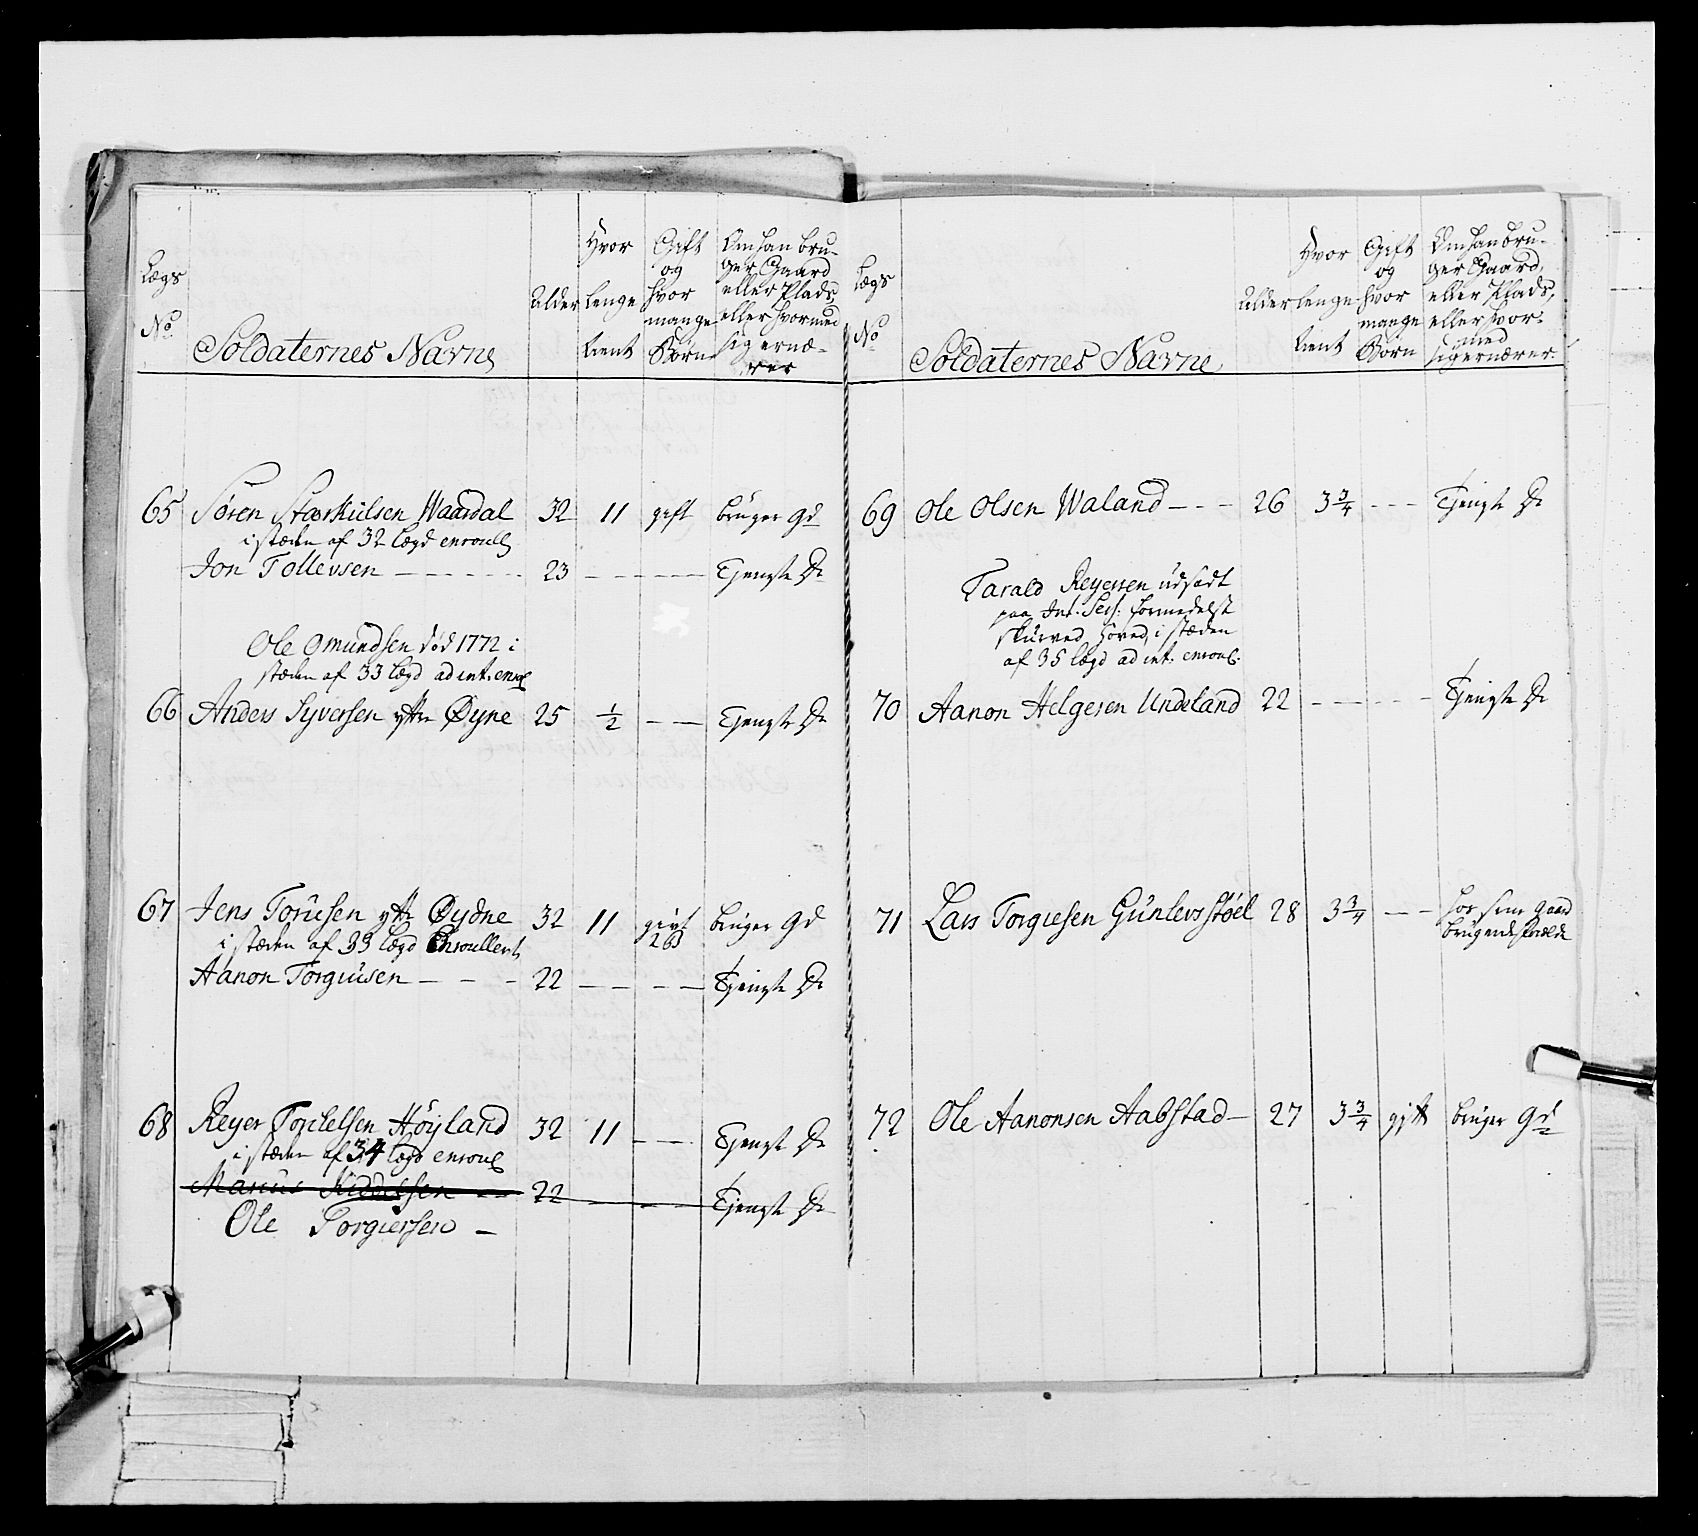 Lægs No
Soldaternes Navne
Alder
Hvor lenge tient
Gift og hvor mange Børn
Om han bruger Gaard eller Plads, eller hvormed sig ernærer
65 Søren Stærkulsen Waardal 32 11 gift bruger Gd
i stæden af 32 Lægd enroull
Jon Tollevsen - - - - - - 23 - - - - - Tjenste Dr
Ole Omundsen død 1772 i
stæden af 33 Lægd ad int. enroul
66 Anders Syversen yttre Øyne 25 1/2 - - - Tjenste Dr
67 Jens Toruesen yttr Øydne 32 11 givt 2 B bruger Gd
i stæden af 33 Lægd Enroullert
Aanon Torgiusen - - - 22 - - - - - Tjenste Dr
68 Reyer Torkelsen Høyland 32 11 - - - Tjenste Dr
i stæden af 34 Lægd enroul
Marius Kiddelsen - - 22 - - - Tjenste Dr
Ole Torgiersen -
Lægs No
Soldaternes Navne
Alder
Hvor lenge tient
Gift og hvor mange Børn
Om han bruger Gaard, eller Plads, eller hvormed sig ernærer
69 Ole Olsen Waland - - - 26 3 3/4 - - - Tjenste Dr
Tarald Reyersen udsadt
paa Int. Sess: formedelst
skurved Hoved, i stæden
af 35 Lægd ad int. enroul.
70 Aanon Helgesen Undeland 22 - - - - - Tjenste Dr
71 Lars Torgiesen Gunlevsstøel 28 3 3/4 - - - hos sine gaard
brugende Forældre
72 Ole Aanonsen Aabstad - 27 3 3/4 gift bruger Gd